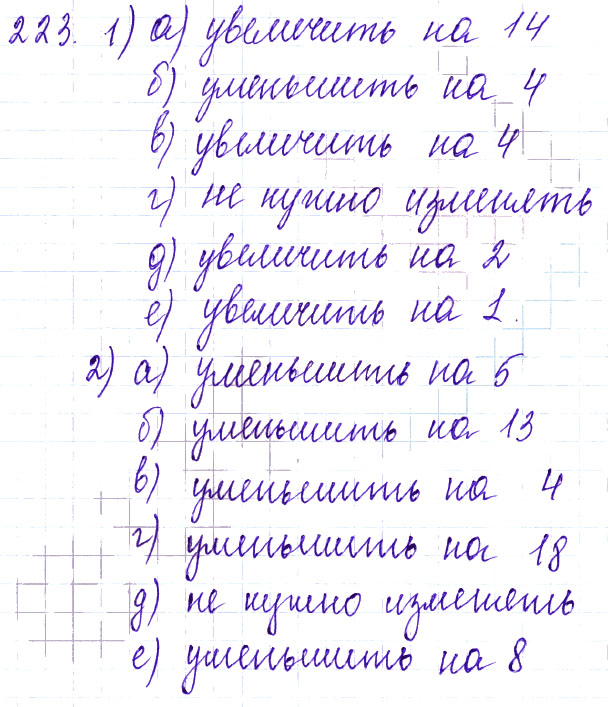 223. 1) а) увеличить на 14
б) уменьшить на 4
в) увеличить на 4
г) не нужно изменять
д) увеличить на 2
е) увеличить на 1.
2) а) уменьшить на 5
б) уменьшить на 13
в) уменьшить на 4
г) уменьшить на 18
д) не нужно изменять
е) уменьшить на 8